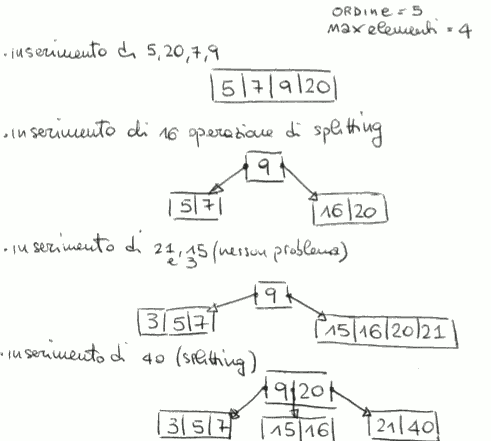 ORDINE = 5
MAX elementi = 4
. inserimento di 5, 20, 7, 9
5 7 9 20
. inserimento di 16 operazione di splitting
9
5 7 16 20
. inserimento di 21, 15 (nessun problema)
e 3
9
3 5 7 15 16 20 21
. inserimento di 40 (splitting)
9 20
3 5 7 15 16 21 40